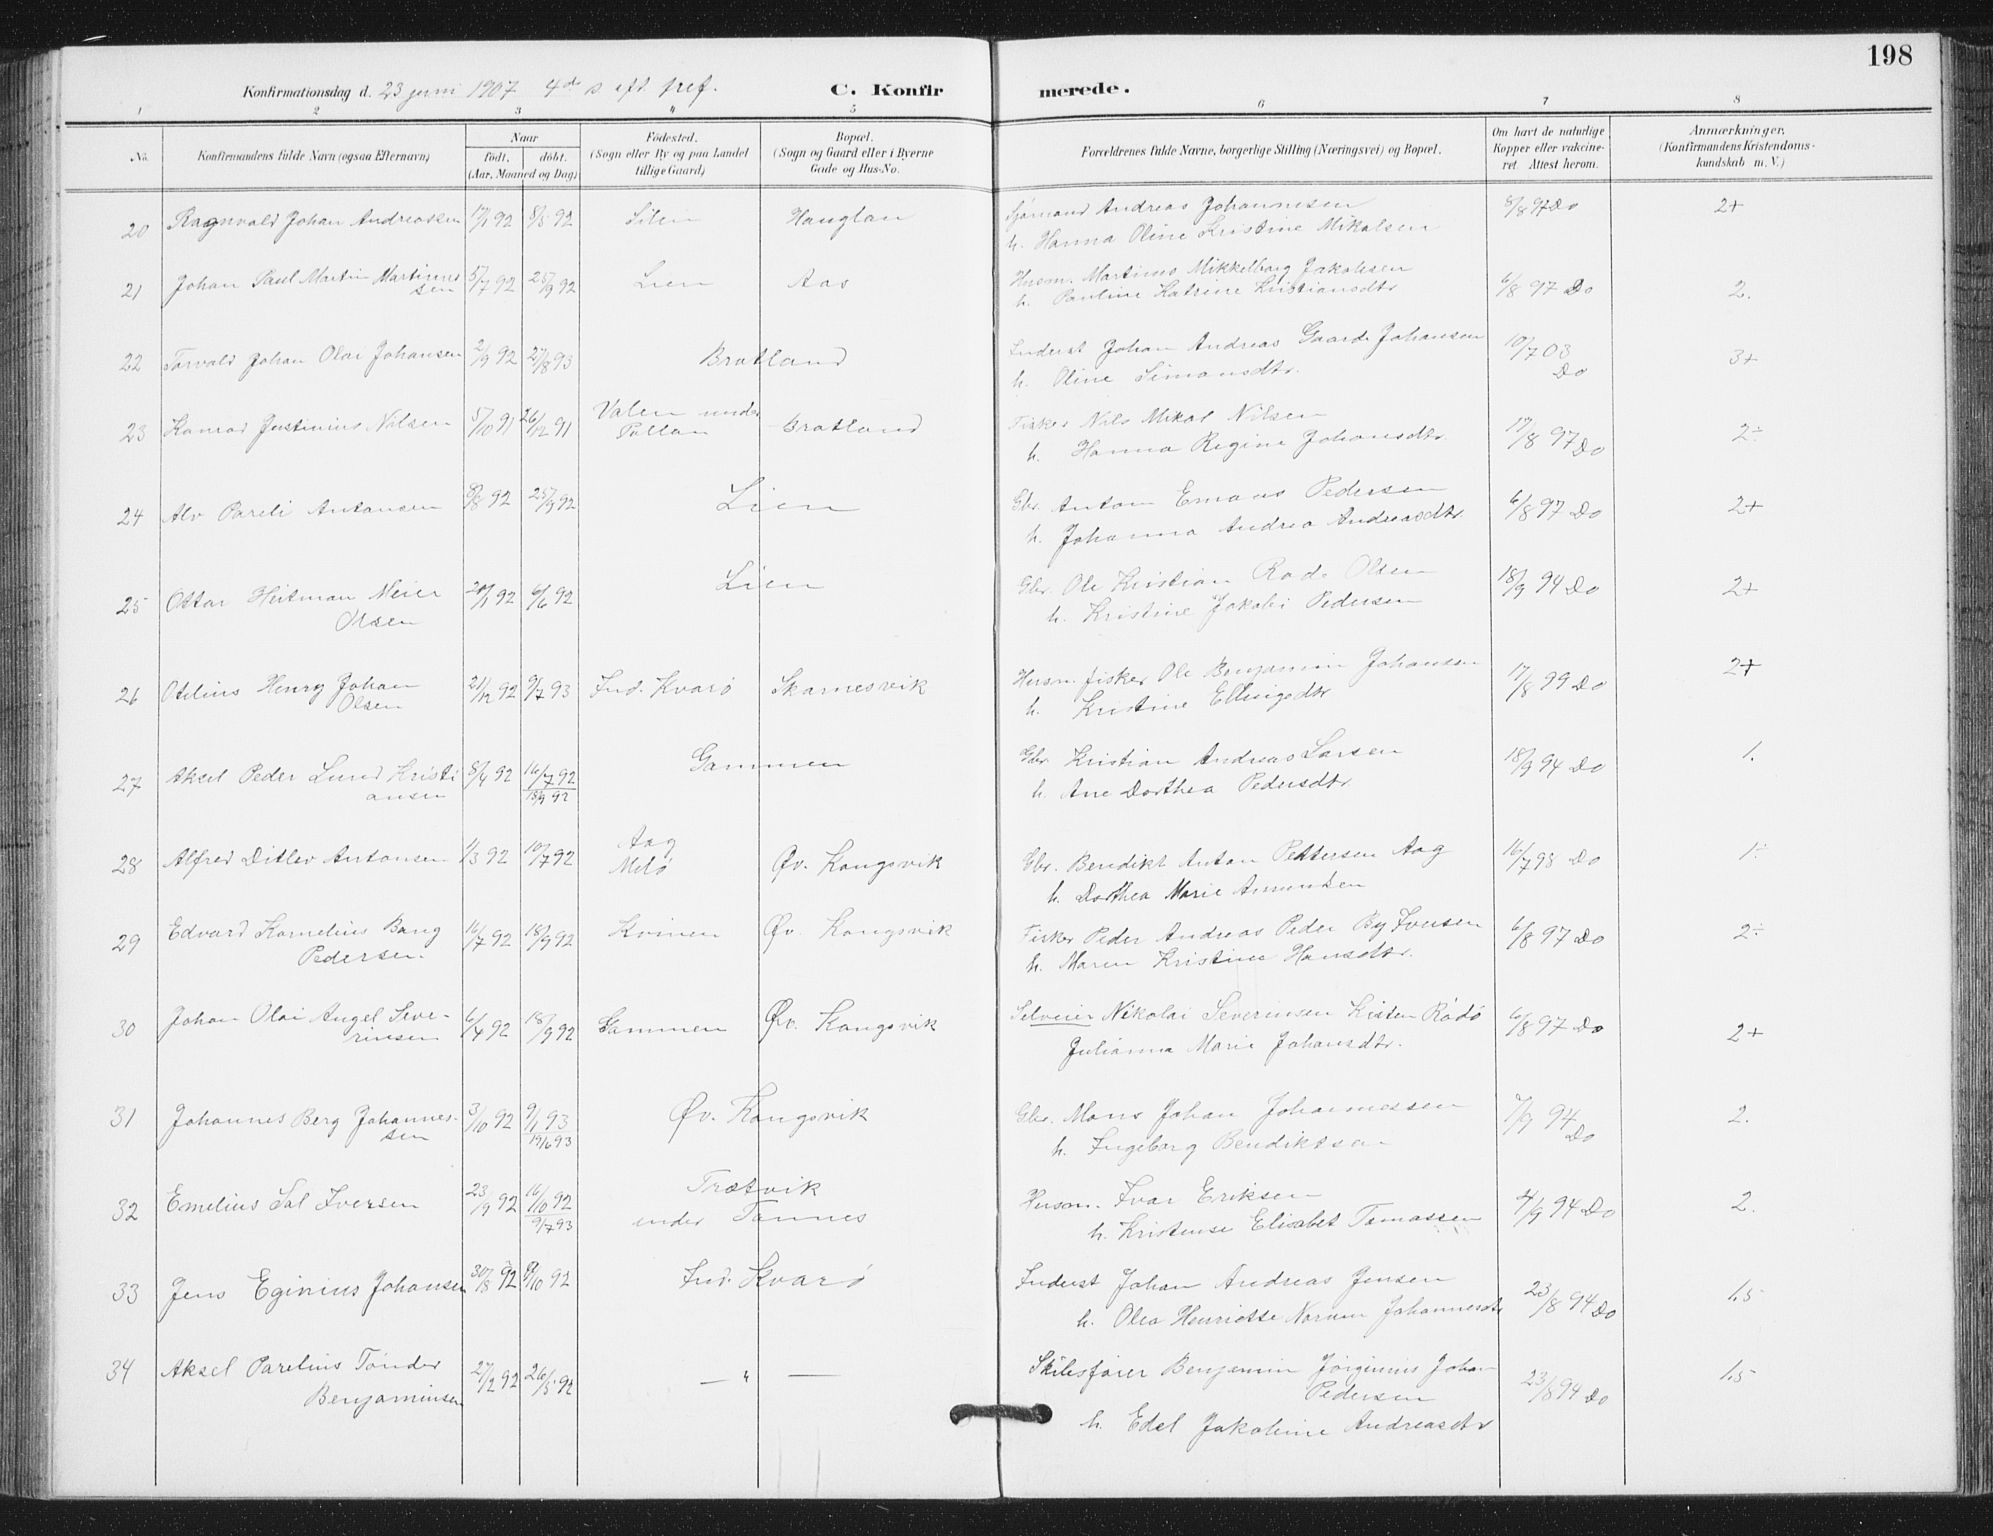 198
Konfirmationsdag d. 23 juni 1907 4de s. eft. tref. C. Konfir merede.
1 2 3 4 5 6 7 8
No. Konfirmandens fulde Navn (ogsaa Efternavn) Naar født. døbt. (Aar, Maaned og Dag) Fødested. (Sogn eller By og paa Landet tillige Gaard) Bopæl. (Sogn og Gaard eller i Byerne Gade og Hus-No. Forældrenes fulde Navne, borgerlige Stilling (Næringsvei) og Bopæl. Om havt de naturlige Kopper eller vakcineret. Attest herom. Anmærkninger. (Konfirmandens Kristendomskundskab m. V.)
20 Ragnvald Johan Andreassen 17/1 92 8/5 92 Hauglan Sjømand Andreas Johannesen 8/8 97 Do 2+
h. Hanna Oline Kristine Mikalsen
21 Johan Paul Martin Martinus 5/7 92 25/9 92 Lien Aas Husm. Martinus Mikkelborg Jakobsen 6/8 97 Do 2.
sen h. Pauline Katrine Kristiansdtr
22 Torvald Johan Olai Johansen 2/9 92 27/8 93 Bratland Inderst Johan Andreas Gaarde Johansen 10/7 03 Do 3+
h. Oline Simonsdtr.
23 Konrad Justinius Nilsen 5/10 91 26/12 91 Valen under Pollan Bratland Fisker Nils Mikal Nilsen 17/8 97 Do 2÷
h. Hanna Regine Johansdtr
24 Alv Pareli Antonsen 8/8 92 25/9 92 Lien Gbr. Anton Emaus Pedersen 6/8 97 Do 2+
h. Johanna Andrea Andreasdtr
25 Ottar Heitman Meier 20/1 92 6/6 92 Lien Gbr. Ole Kristian Rode Olsen 18/9 94 Do 2+
Olsen h. Kristine Jakobi Pedersen
26 Otelius Henry Johan 21/12 92 9/7 93 Ind. Kvarø Skarnesvik Husm. fisker Ole Benjamin Johansen 17/8 99 Do 2+
Olsen h. Kristine Ellingsdtr
27 Aksel Peder Lund Kristi 8/4 92 16/7 92 Gammen Gbr. Kristian Andreas Larsen 18/9 94 Do 1.
ansen 18/9 92 h. Ane Dorthea Pedersdtr
28 Alfred Ditlev Antonsen 1/3 92 10/7 92 Aag Melø Øv. Kongsvik Gbr. Bendikt Anton Pettersen Aag 16/7 98 Do 1÷
h. Dorthea Marie Amundsen
29 Edvard Kornelius Bang 16/7 92 18/9 92 Kvinen Øv. Kongsvik Fisker Peder Andreas Peder By Iversen 6/8 97 Do 2÷
Pedersen. h. Maren Kristine Hansdtr.
30 Johan Olai Angel Seve- 6/4 92 18/9 92 Gammen Øv. Kongsvik Selveier Nikolai Severinsen Kisten Rødø 6/8 97 Do 2+
rinsen Julianna Marie Johansdtr.
31 Johannes Berg Johannes- 3/10 92 9/1 93 Øv. Kongsvik Gbr. Mons Johan Johannessen 7/9 94 Do 2.
sen 19/6 93 h. Ingeborg Bendiktsen
32 Emelius Sal Iversen 23/9 92 16/10 92 Trætvik Husm. Ivar Eriksen 4/9 94 Do 2.
9/7 93 under Tonnes h. Kristense Elisabet Tomassen
33 Jens Eginius Johansen 30/8 92 9/10 92 Ind. Kvarø Inderst Johan Andreas Jensen 23/8 94 Do 1,5
h. Olea Henriette Norum Johannesdtr
34 Aksel Parelius Tønder 27/2 92 26/5 92 — " — Skibsfører Benjamin Jørginius Johan 23/8 94 Do 1,5
Benjaminsen Pedersen
h. Edel Jakobine Andreasdtr